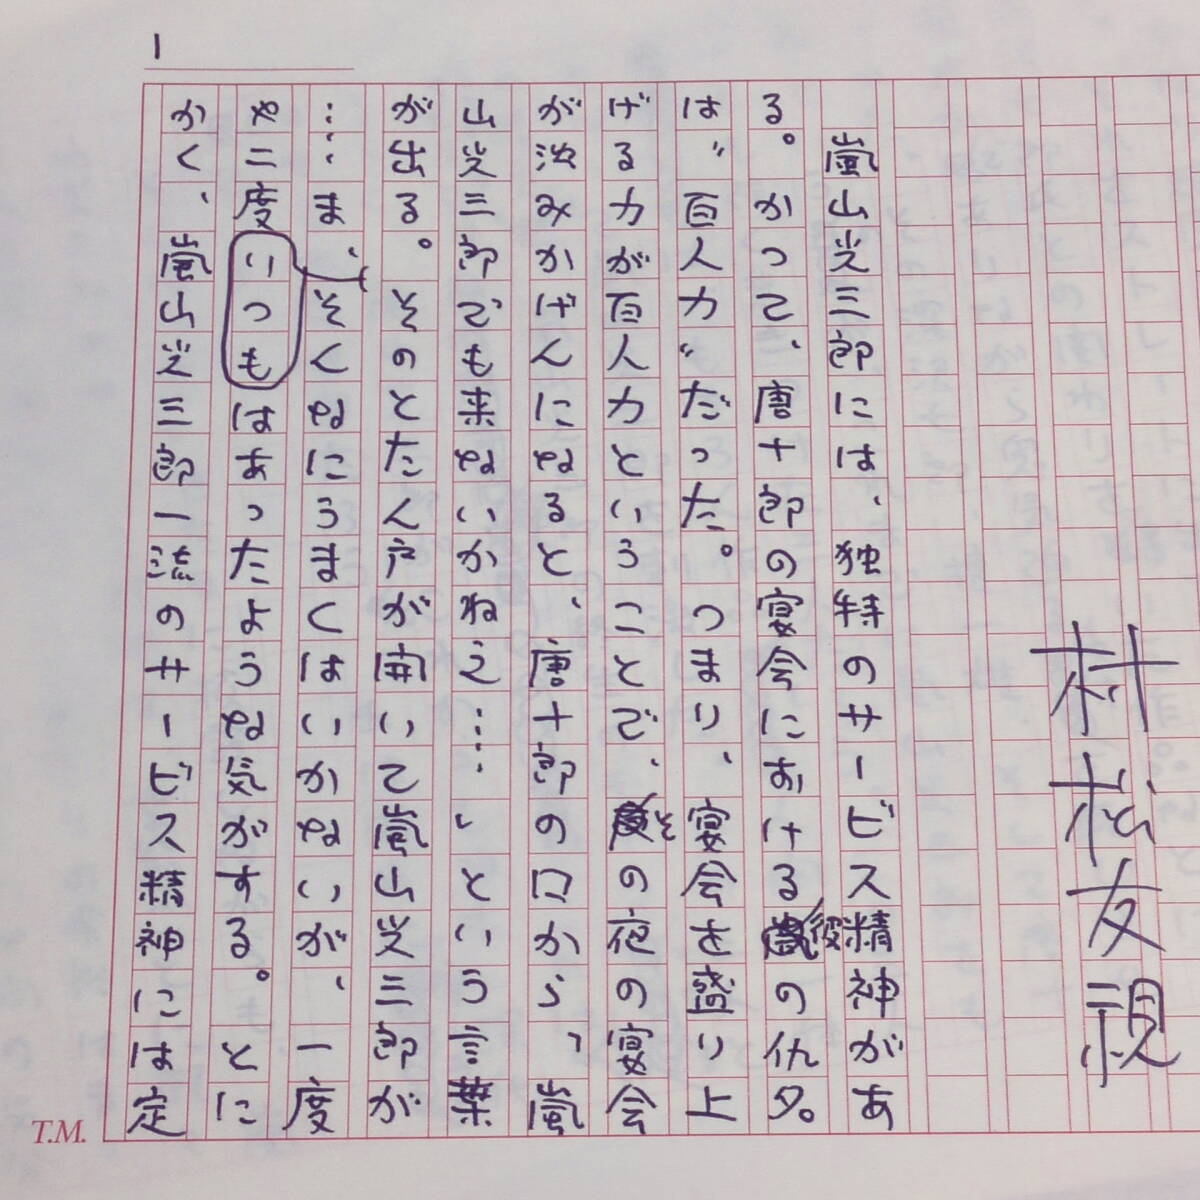 1
村松友視
嵐山光三郎には、独特のサービス精神があ
る。かつて、唐十郎の宴会における彼の仇名
は〝百人力〟だった。つまり、宴会を盛り上
げる力が百人力ということで、その夜の宴会
が沈みかげんになると、唐十郎の口から、「嵐
山光三郎でも来ないかねえ……」という言葉
が出る。そのとたん戸が開いて嵐山光三郎が
……ま、そんなにうまくはいかないが、一度
や二度いつもはあったような気がする。とに
かく、嵐山光三郎一流のサービス精神には定
T.M.